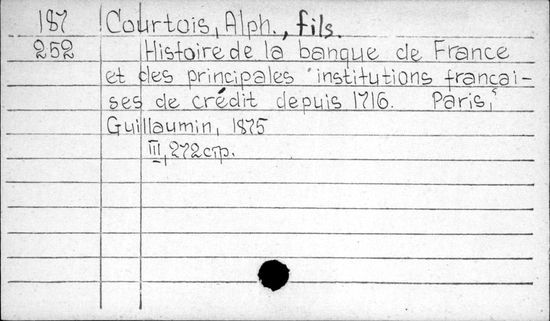 187 Courtois, Alph., fils.
252 Histoire de la banque de France
et des principales institutions françai-
ses de crédit depuis 1716. Paris,
Guillaumin, 1875
III, 272 стр.